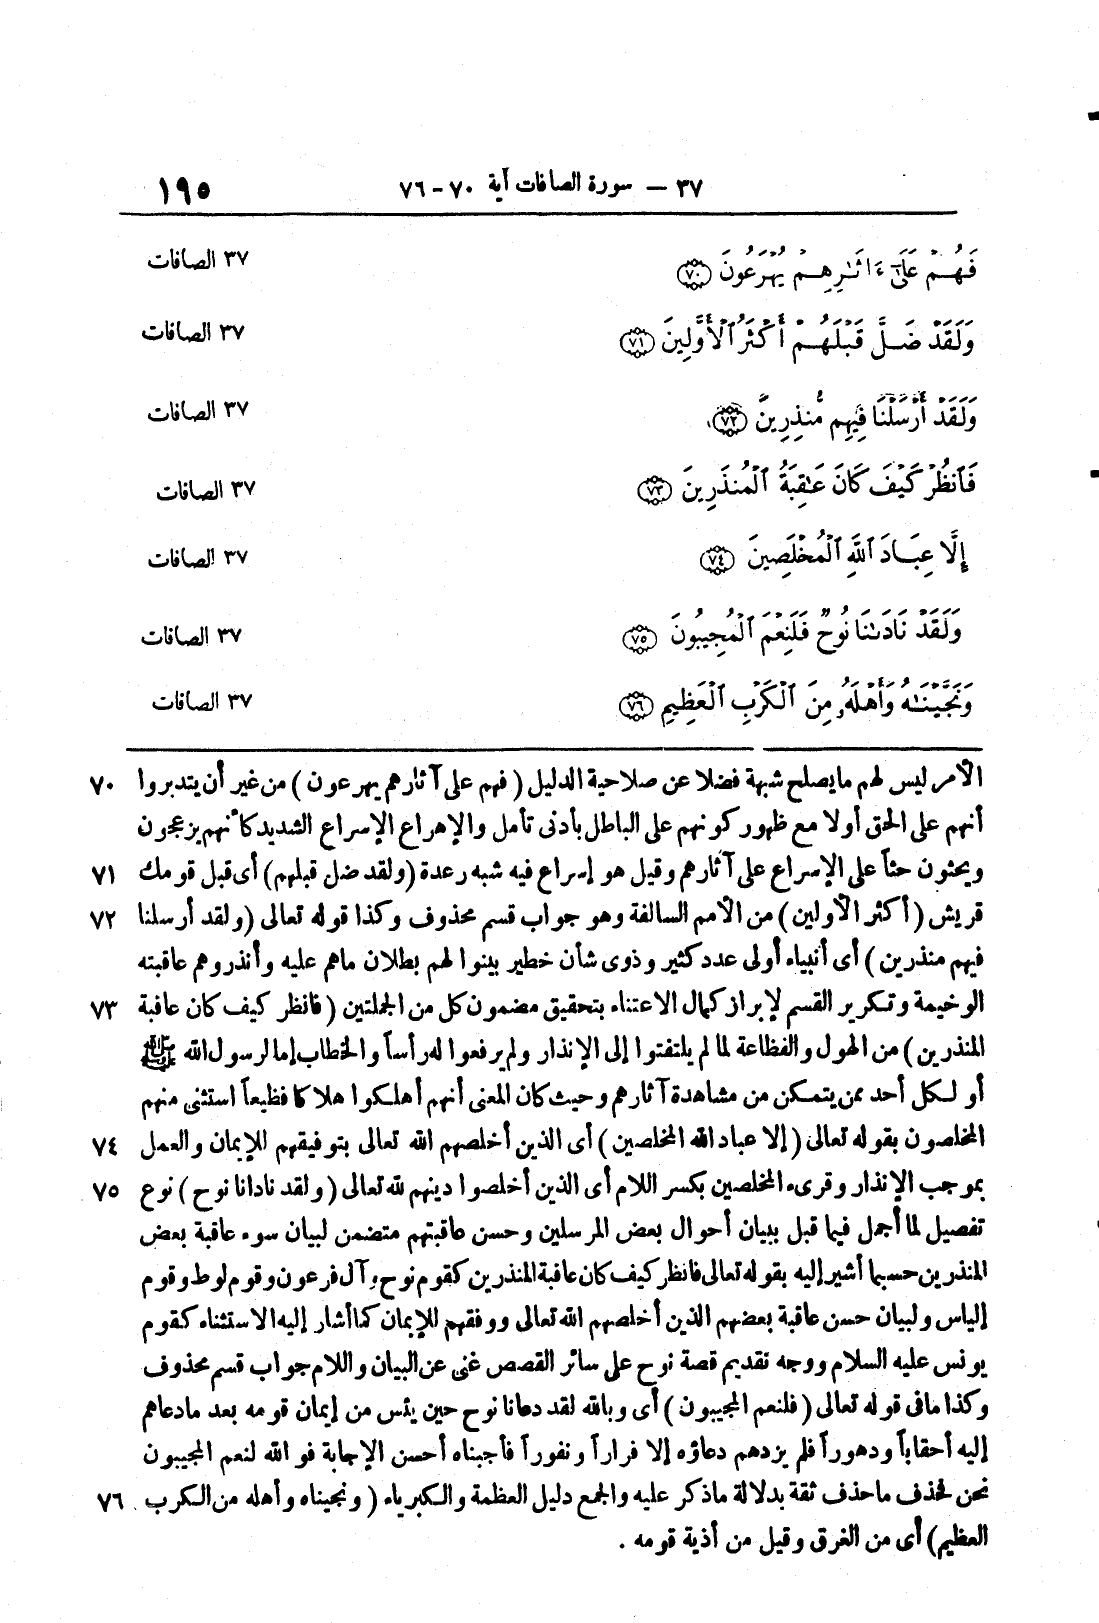 ٣٧ — سورة الصافات آية ٧٠ - ٧٦ ١٩٥
فَهُمْ عَلَىٰٓ ءَاثَٰرِهِمْ يُهْرَعُونَ ٧٠ ٣٧ الصافات
وَلَقَدْ ضَلَّ قَبْلَهُمْ أَكْثَرُ ٱلْأَوَّلِينَ ٧١ ٣٧ الصافات
وَلَقَدْ أَرْسَلْنَا فِيهِم مُّنذِرِينَ ٧٢ ٣٧ الصافات
فَٱنظُرْ كَيْفَ كَانَ عَٰقِبَةُ ٱلْمُنذَرِينَ ٧٣ ٣٧ الصافات
إِلَّا عِبَادَ ٱللَّهِ ٱلْمُخْلَصِينَ ٧٤ ٣٧ الصافات
وَلَقَدْ نَادَىٰنَا نُوحٌ فَلَنِعْمَ ٱلْمُجِيبُونَ ٧٥ ٣٧ الصافات
وَنَجَّيْنَٰهُ وَأَهْلَهُۥ مِنَ ٱلْكَرْبِ ٱلْعَظِيمِ ٧٦ ٣٧ الصافات
الأمر ليس لهم ما يصلح شبهة فضلا عن صلاحية الدليل ( فهم على آثارهم يهرعون ) من غير أن يتدبروا ٧٠
أنهم على الحق أولا مع ظهور كونهم على الباطل بأدنى تأمل والإهراع الإسراع الشديد كأنهم يزعجون
ويحثون حثاً على الإسراع على آثارهم وقيل هو إسراع فيه شبه رعدة (ولقد ضل قبلهم) أى قبل قومك ٧١
قريش ( أكثر الأولين ) من الأمم السالفة وهو جواب قسم محذوف وكذا قوله تعالى (ولقد أرسلنا ٧٢
فيهم منذرين ) أى أنبياء أولى عدد كثير وذوى شأن خطير بينوا لهم بطلان ماهم عليه وأنذروهم عاقبته
الوخيمة وتكرير القسم لإبراز كمال الاعتناء بتحقيق مضمون كل من الجملتين ( فانظر كيف كان عاقبة ٧٣
المنذرين ) من الهول والفظاعة لما لم يلتفتوا إلى الإنذار ولم يرفعوا له رأساً والخطاب إما لرسول الله ﷺ
أو لكل أحد ممن يتمكن من مشاهدة آثارهم وحيث كان المعنى أنهم أهلكوا هلاكا فظيعاً استثنى منهم
المخلصون بقوله تعالى ( إلا عباد الله المخلصين ) أى الذين أخلصهم الله تعالى بتوفيقهم للإيمان والعمل ٧٤
بموجب الإنذار وقرىء المخلصين بكسر اللام أى الذين أخلصوا دينهم لله تعالى ( ولقد نادانا نوح ) نوع ٧٥
تفصيل لما أجمل فيما قبل ببيان أحوال بعض المرسلين وحسن عاقبتهم متضمن لبيان سوء عاقبة بعض
المنذرين حسبما أشير إليه بقوله تعالى فانظر كيف كان عاقبة المنذرين كقوم نوح وآل فرعون وقوم لوط وقوم
إلياس ولبيان حسن عاقبة بعضهم الذين أخلصهم الله تعالى ووفقهم للإيمان كما أشار إليه الاستثناء كقوم
يونس عليه السلام ووجه تقديم قصة نوح على سائر القصص غنى عن البيان واللام جواب قسم محذوف
وكذا مافى قوله تعالى ( فلنعم المجيبون ) أى وبالله لقد دعانا نوح حين يئس من إيمان قومه بعد مادعاهم
إليه أحقاباً ودهوراً فلم يزدهم دعاؤه إلا فراراً ونفوراً فأجبناه أحسن الإجابة فو الله لنعم المجيبون
نحن فحذف ماحذف ثقة بدلالة ماذكر عليه والجمع دليل العظمة والكبرياء ( ونجيناه وأهله من الكرب ٧٦
العظيم ) أى من الغرق وقيل من أذية قومه .